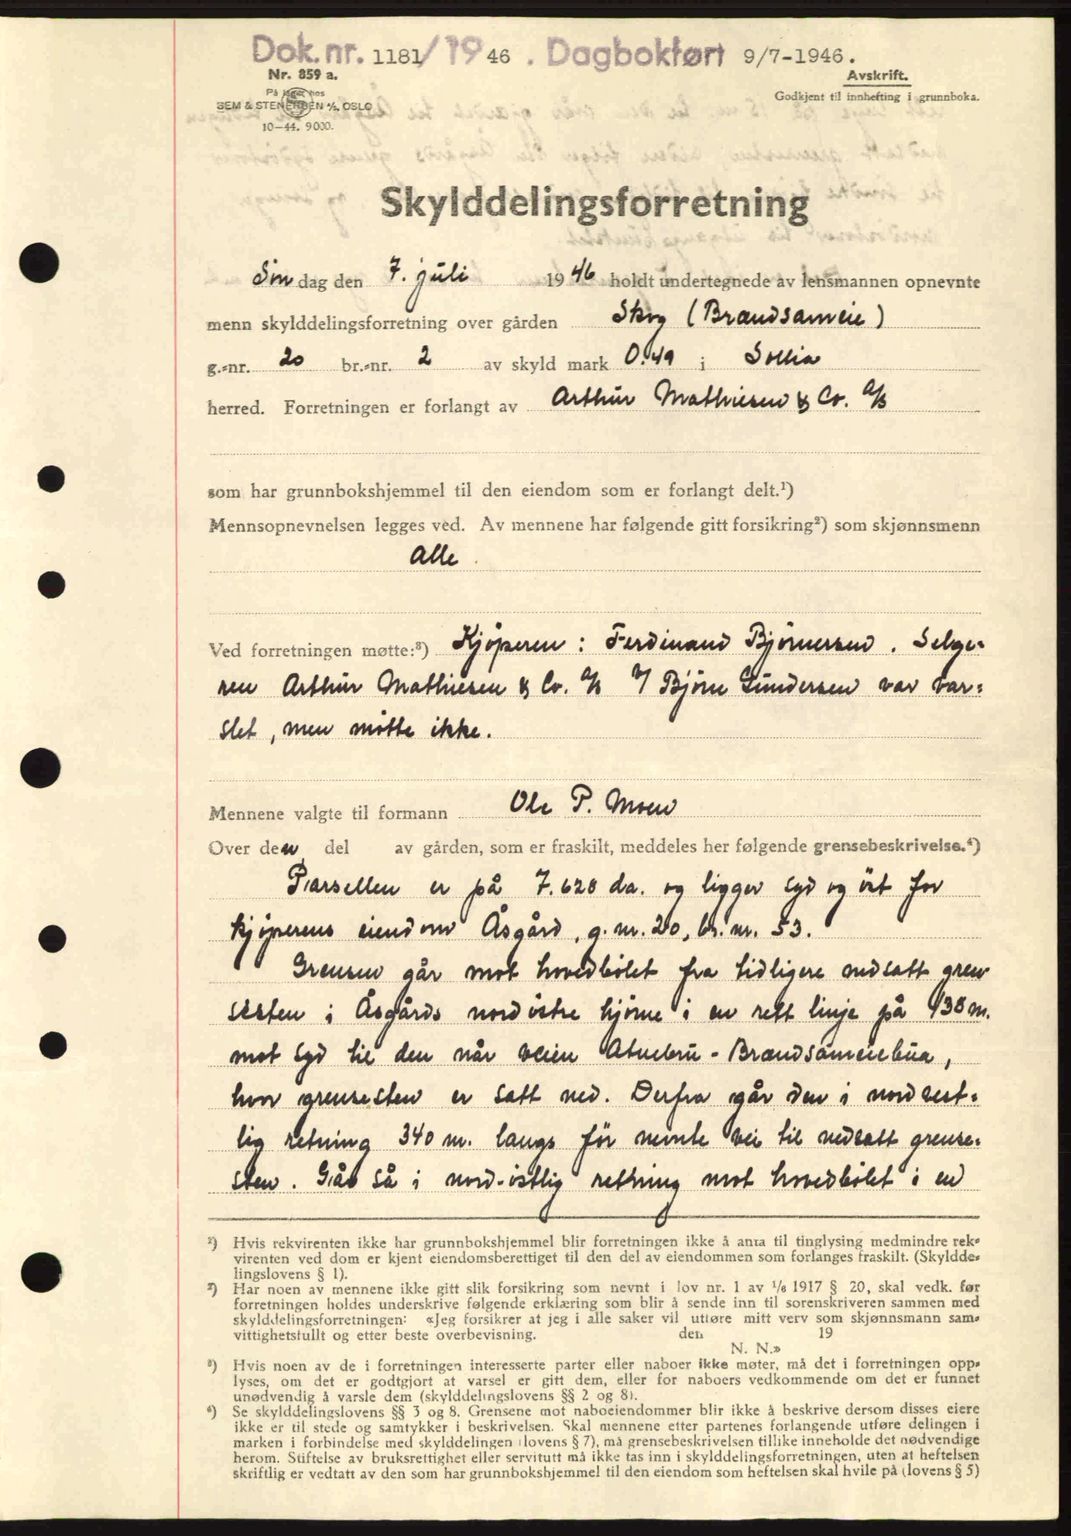 Dok. nr. 1181/1946. Dagbokført 9/7-1946.
Nr. 859 a.
På lager hos
SEM & STENERSEN A/S, OSLO
10-44. 9000.
Avskrift.
Godkjent til innhefting i grunnboka.
Skylddelingsforretning
Søn dag den 7. juli 1946 holdt undertegnede av lensmannen opnevnte
menn skylddelingsforretning over gården Skog (Brændsameie)
g.-nr. 20 br.-nr. 2 av skyld mark 0.49 i Sollia
herred. Forretningen er forlangt av Arthur Mathiesen & Co. A/S
som har grunnbokshjemmel til den eiendom som er forlangt delt.¹)
Mennsopnevnelsen legges ved. Av mennene har følgende gitt forsikring²) som skjønnsmenn
Alle.
Ved forretningen møtte:³) Kjøperen: Ferdinand Bjørnersen. Selge-
ren Arthur Mathiesen & Co. A/S v/ Bjørn Gundersen var var-
slet, men møtte ikke.
Mennene valgte til formann Ole P. Moen
Over den del av gården, som er fraskilt, meddeles her følgende grensebeskrivelse.⁴)
Parsellen er på 7.628 da. og ligger syd og øst for
kjøperens eiendom Åsgård, g.nr. 20, br.nr. 53.
Grensen går mot hovedbølet fra tidligere nedsatt gren-
sesten i Åsgårds nordøstre hjørne i en rett linje på 138 m.
mot syd til den når veien Atnebru - Brændsameiebua,
hvor grensesten er satt ned. Derfra går den i nordvest-
lig retning 340 m. langs før nevnte vei til nedsatt grense-
sten. Går så i nord-østlig retning mot hovedbølet i en
¹) Hvis rekvirenten ikke har grunnbokshjemmel blir forretningen ikke å anta til tinglysing medmindre rek-
virenten ved dom er kjent eiendomsberettiget til den del av eiendommen som forlanges fraskilt. (Skyldde-
lingslovens § 1).
²) Har noen av mennene ikke gitt slik forsikring som nevnt i lov nr. 1 av 1/6 1917 § 20, skal vedk. før
forretningen holdes underskrive følgende erklæring som blir å sende inn til sorenskriveren sammen med
skylddelingsforretningen: «Jeg forsikrer at jeg i alle saker vil utføre mitt verv som skjønnsmann sam-
vittighetsfullt og etter beste overbevisning. den 19
N. N.»
³) Hvis noen av de i forretningen interesserte parter eller naboer ikke møter, må det i forretningen opp-
lyses, om det er godtgjort at varsel er gitt dem, eller for naboers vedkommende om det er funnet
unødvendig å varsle dem (skylddelingslovens §§ 2 og 8).
⁴) Se skylddelingslovens §§ 3 og 8. Grensene mot naboeiendommer blir ikke å beskrive dersom disses eiere
ikke er til stede og samtykker i beskrivelsen. Skal mennene etter partenes forlangende utføre delingen i
marken i forbindelse med skylddelingen (lovens § 7), må grensebeskrivelsen tillike inneholde det nødvendige
herom. Stiftelse av bruksrettighet eller servitutt må ikke tas inn i skylddelingsforretningen, uten at heftelsen
skriftlig er vedtatt av den som har grunnbokshjemmel til den eiendom som heftelsen skal hvile på (lovens § 5)